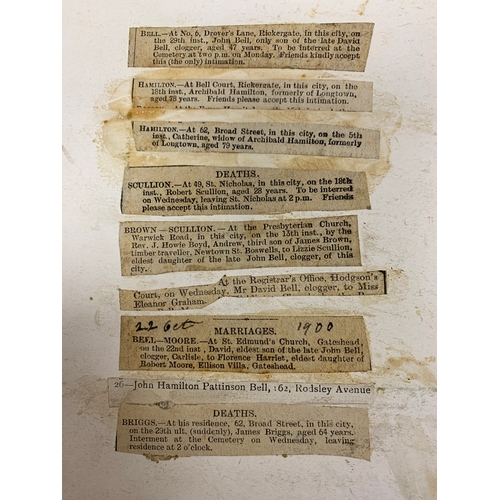 BELL.—At No. 6, Drover's Lane, Rickergate, in this city, on
the 29th inst., John Bell, only son of the late David
Bell, clogger, aged 47 years. To be interred at the
Cemetery at two p.m. on Monday. Friends kindly accept
this (the only) intimation.
HAMILTON.—At Bell Court, Rickergate, in this city, on the
13th inst., Archibald Hamilton, formerly of Longtown,
aged 75 years. Friends please accept this intimation.
HAMILTON.—At 62, Broad Street, in this city, on the 5th
inst., Catherine, widow of Archibald Hamilton, formerly
of Longtown, aged 79 years.
DEATHS.
SCULLION.—At 49, St. Nicholas, in this city, on the 18th
inst., Robert Scullion, aged 28 years. To be interred
on Wednesday, leaving St. Nicholas at 2 p.m. Friends
please accept this intimation.
BROWN—SCULLION.—At the Presbyterian Church,
Warwick Road, in this city, on the 13th inst., by the
Rev. J. Howie Boyd, Andrew, third son of James Brown,
timber traveller, Newtown St. Boswells, to Lizzie Scullion,
eldest daughter of the late John Bell, clogger, of this
city.
At the Registrar's Office, Hodgson's
Court, on Wednesday, Mr David Bell, clogger, to Miss
Eleanor Graham.
22 Oct 1900
MARRIAGES.
BELL—MOORE.—At St. Edmund's Church, Gateshead,
on the 22nd inst., David, eldest son of the late John Bell,
clogger, Carlisle, to Florence Harriet, eldest daughter of
Robert Moore, Ellison Villa, Gateshead.
26—John Hamilton Pattinson Bell, 162, Rodsley Avenue
DEATHS.
BRIGGS.—At his residence, 62, Broad Street, in this city,
on the 29th ult. (suddenly), James Briggs, aged 64 years.
Interment at the Cemetery on Wednesday, leaving
residence at 2 o'clock.